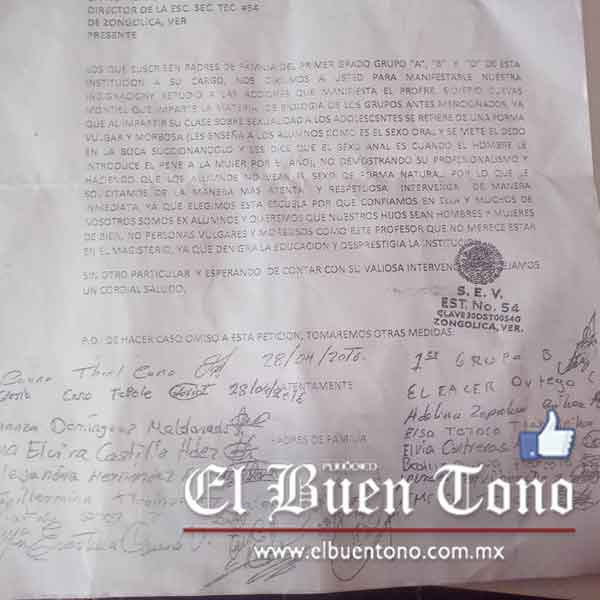 DIRECTOR DE LA ESC. SEC. TEC. #54
DE ZONGOLICA, VER
PRESENTE
LOS QUE SUSCRIBEN PADRES DE FAMILIA DEL PRIMER GRADO GRUPO "A", "B" Y "D" DE ESTA
INSTITUCION A SU CARGO, NOS DIRIJIMOS A USTED PARA MANIFESTARLE NUESTRA
INDIGNACION Y REPUDIO A LAS ACCIONES QUE MANIFIESTA EL PROFR. CUEVAS
MONTIEL QUE IMPARTE LA MATERIA DE BIOLOGIA DE LOS GRUPOS ANTES MENCIONADOS, YA
QUE AL IMPARTIR SU CLASE SOBRE SEXUALIDAD A LOS ADOLESCENTES SE REFIERE DE UNA FORMA
VULGAR Y MORBOSA (LES ENSEÑA A LOS ALUMNOS COMO ES EL SEXO ORAL Y SE METE EL DEDO
EN LA BOCA SUCCIONANDOLO Y LES DICE QUE EL SEXO ANAL ES CUANDO EL HOMBRE LE
INTRODUCE EL PENE A LA MUJER POR EL ANO), NO DEMOSTRANDO SU PROFESIONALISMO Y
HACIENDO QUE LOS ALUMNOS NO VEAN EL SEXO DE FORMA NATURAL. POR LO QUE LE
SOLICITAMOS DE LA MANERA MAS ATENTA Y RESPETUOSA INTERVENGA DE MANERA
INMEDIATA, YA QUE ELEGIMOS ESTA ESCUELA POR QUE CONFIAMOS EN ELLA Y MUCHOS DE
NOSOTROS SOMOS EX ALUMNOS Y QUEREMOS QUE NUESTROS HIJOS SEAN HOMBRES Y MUJERES
DE BIEN, NO PERSONAS VULGARES Y MORBOSOS COMO ESTE PROFESOR QUE NO MERECE ESTAR
EN EL MAGISTERIO, YA QUE DENIGRA LA EDUCACION Y DESPRESTIGIA LA INSTITUCION
SIN OTRO PARTICULAR Y ESPERANDO DE CONTAR CON SU VALIOSA INTERVENCION
UN CORDIAL SALUDO.
S. E. V.
EST. No. 54
CLAVE 30DST0054G
ZONGOLICA, VER.
P.D. DE HACER CASO OMISO A ESTA PETICION, TOMAREMOS OTRAS MEDIDAS.
28/04/2016.
1er GRUPO B
Caso 28/04/2016
ATENTAMENTE
ELEACER Ortega
Dominguez Maldonado
Adelina
Elvira Castillo Hdez
PADRES DE FAMILIA
Elvia Contreras
Hernandez
PERIÓDICO
El Buen Tono
www.elbuentono.com.mx